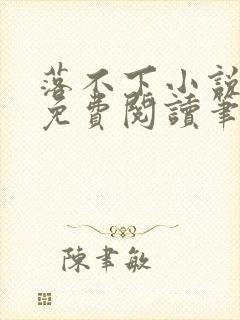 落不下小說
免費閱讀筆
陳聿敏